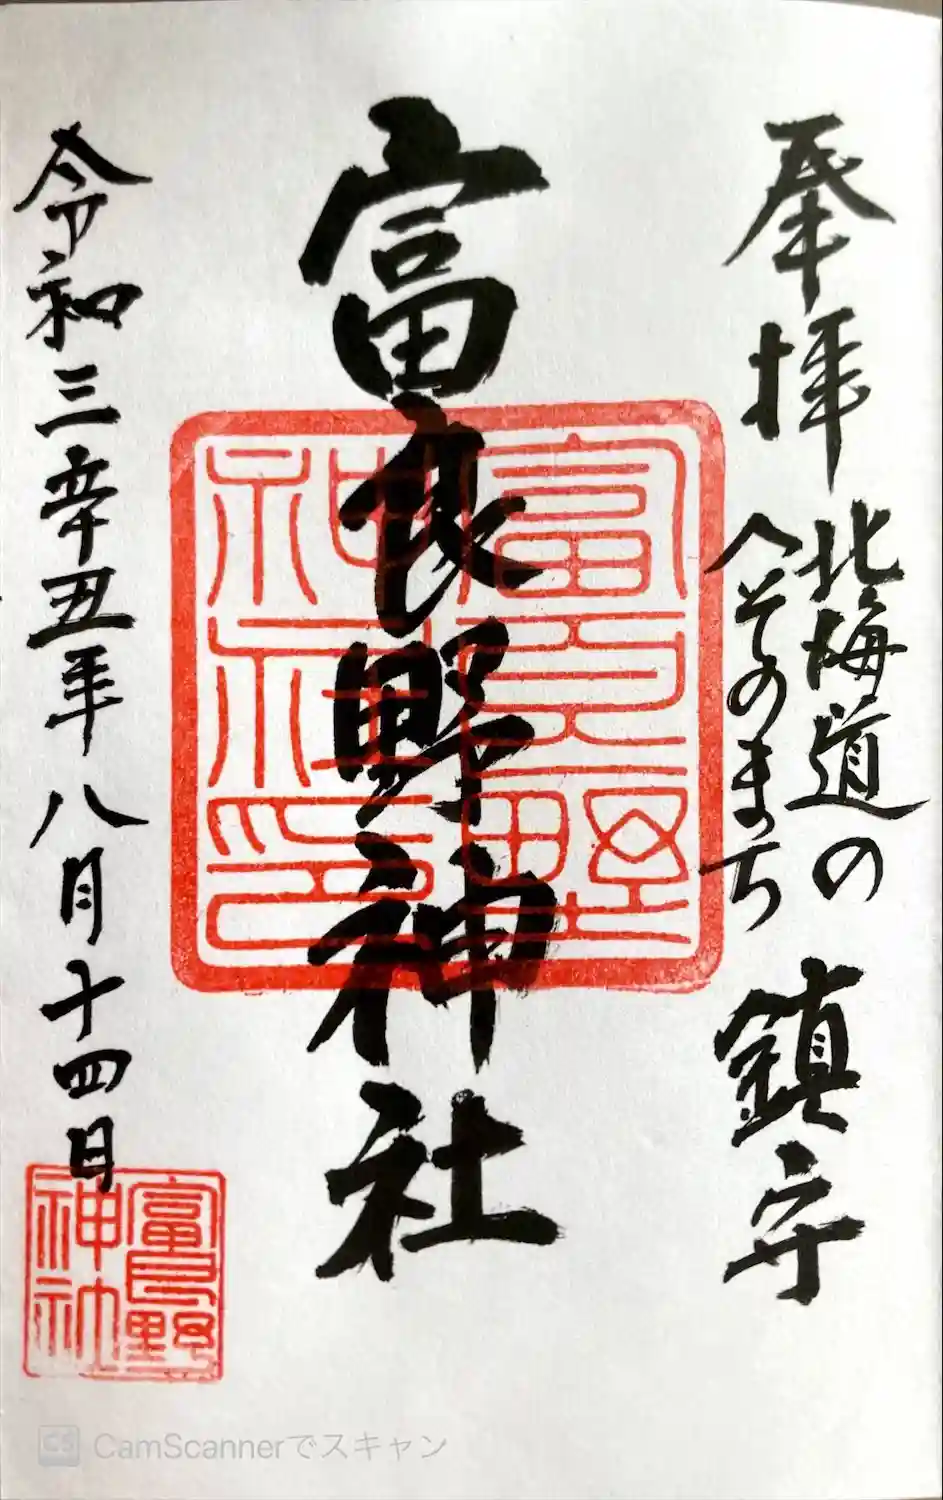 奉拝
北海道の
へそのまち
鎮守
富良野神社
令和三辛丑年八月十四日
富良野
神社印
富良野
神社
CS CamScannerでスキャン